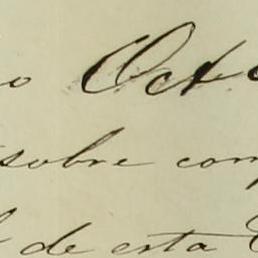 o Octu
sobre com
de esta